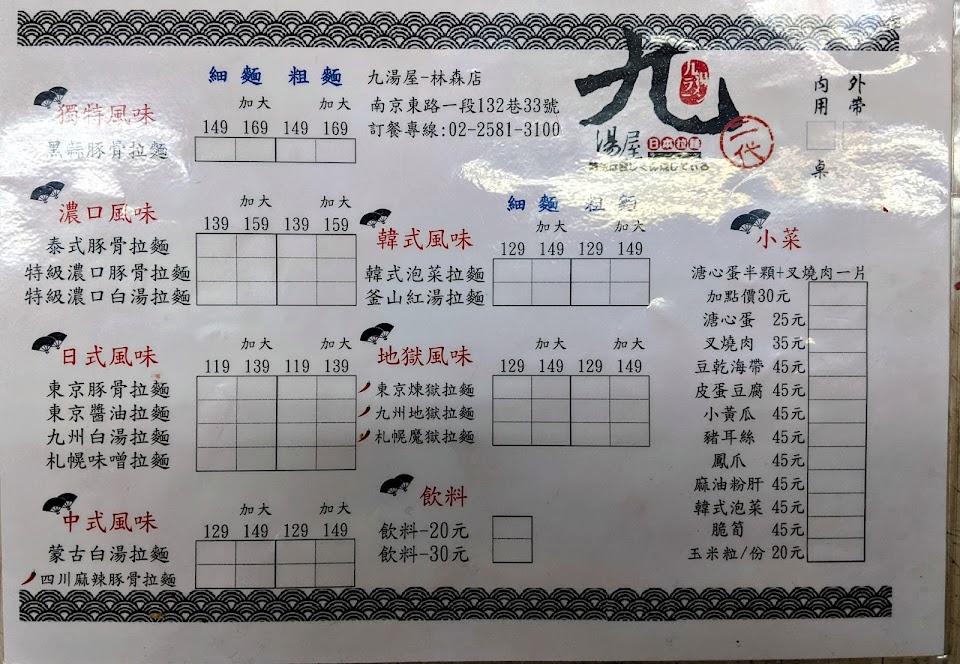 細麵 粗麵
加大 加大
獨特風味 149 169 149 169
黑蒜豚骨拉麵
九湯屋-林森店
南京東路一段132巷33號
訂餐專線:02-2581-3100
九
九湯ラーメン
湯屋
日本拉麵
二代
內用 外帶
桌
加大 加大
濃口風味 139 159 139 159
泰式豚骨拉麵
特級濃口豚骨拉麵
特級濃口白湯拉麵
加大 加大
日式風味 119 139 119 139
東京豚骨拉麵
東京醬油拉麵
九州白湯拉麵
札幌味噌拉麵
加大 加大
中式風味 129 149 129 149
蒙古白湯拉麵
四川麻辣豚骨拉麵
細麵 粗麵
加大 加大
韓式風味 129 149 129 149
韓式泡菜拉麵
釜山紅湯拉麵
加大 加大
地獄風味 129 149 129 149
東京煉獄拉麵
九州地獄拉麵
札幌魔獄拉麵
飲料
飲料-20元
飲料-30元
小菜
溏心蛋半顆+叉燒肉一片
加點價30元
溏心蛋 25元
叉燒肉 35元
豆乾海帶 45元
皮蛋豆腐 45元
小黃瓜 45元
豬耳絲 45元
鳳爪 45元
麻油粉肝 45元
韓式泡菜 45元
脆筍 45元
玉米粒/份 20元